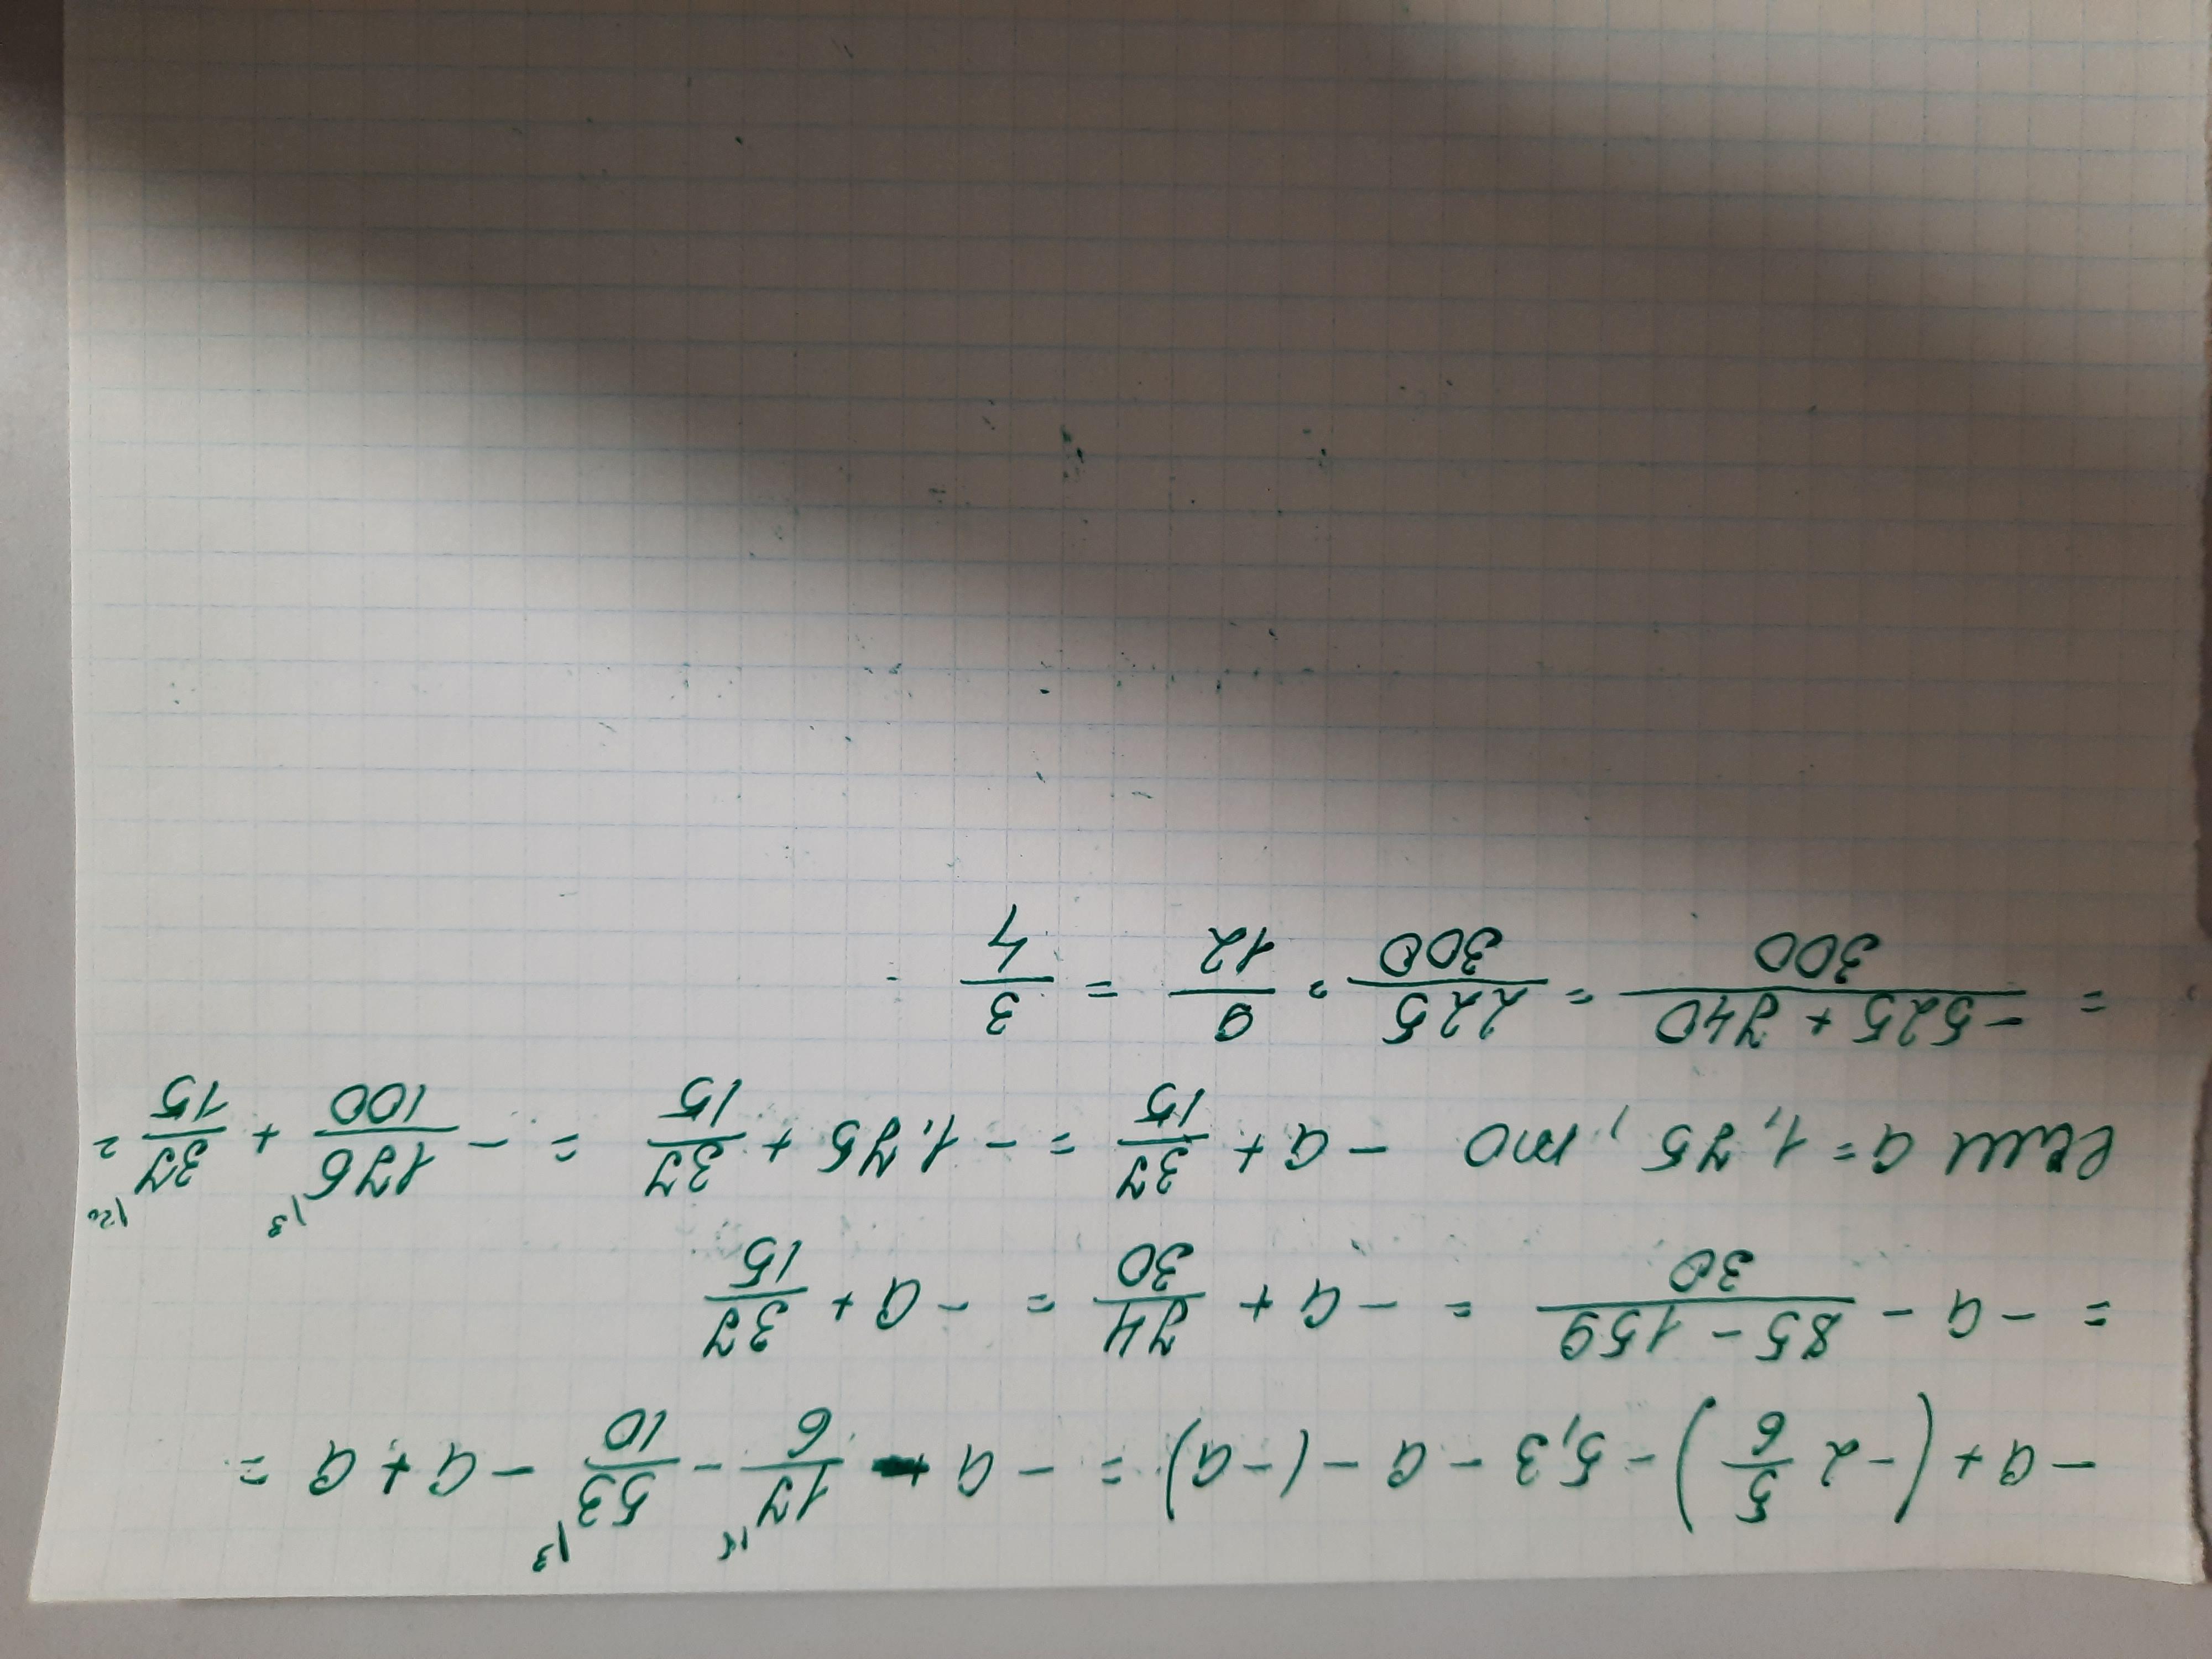 - a + (-2 5/6) - 5,3 - a - (-a) = - a + 17/6 \5 - 53/10 \3 - a + a =
= - a - (85 - 159)/30 = - a + 74/30 = - a + 37/15
если a = 1,75, то - a + 37/15 = - 1,75 + 37/15 = - 175/100 \3 + 37/15 \20 =
= (-525 + 740)/300 = 225/300 = 9/12 = 3/4